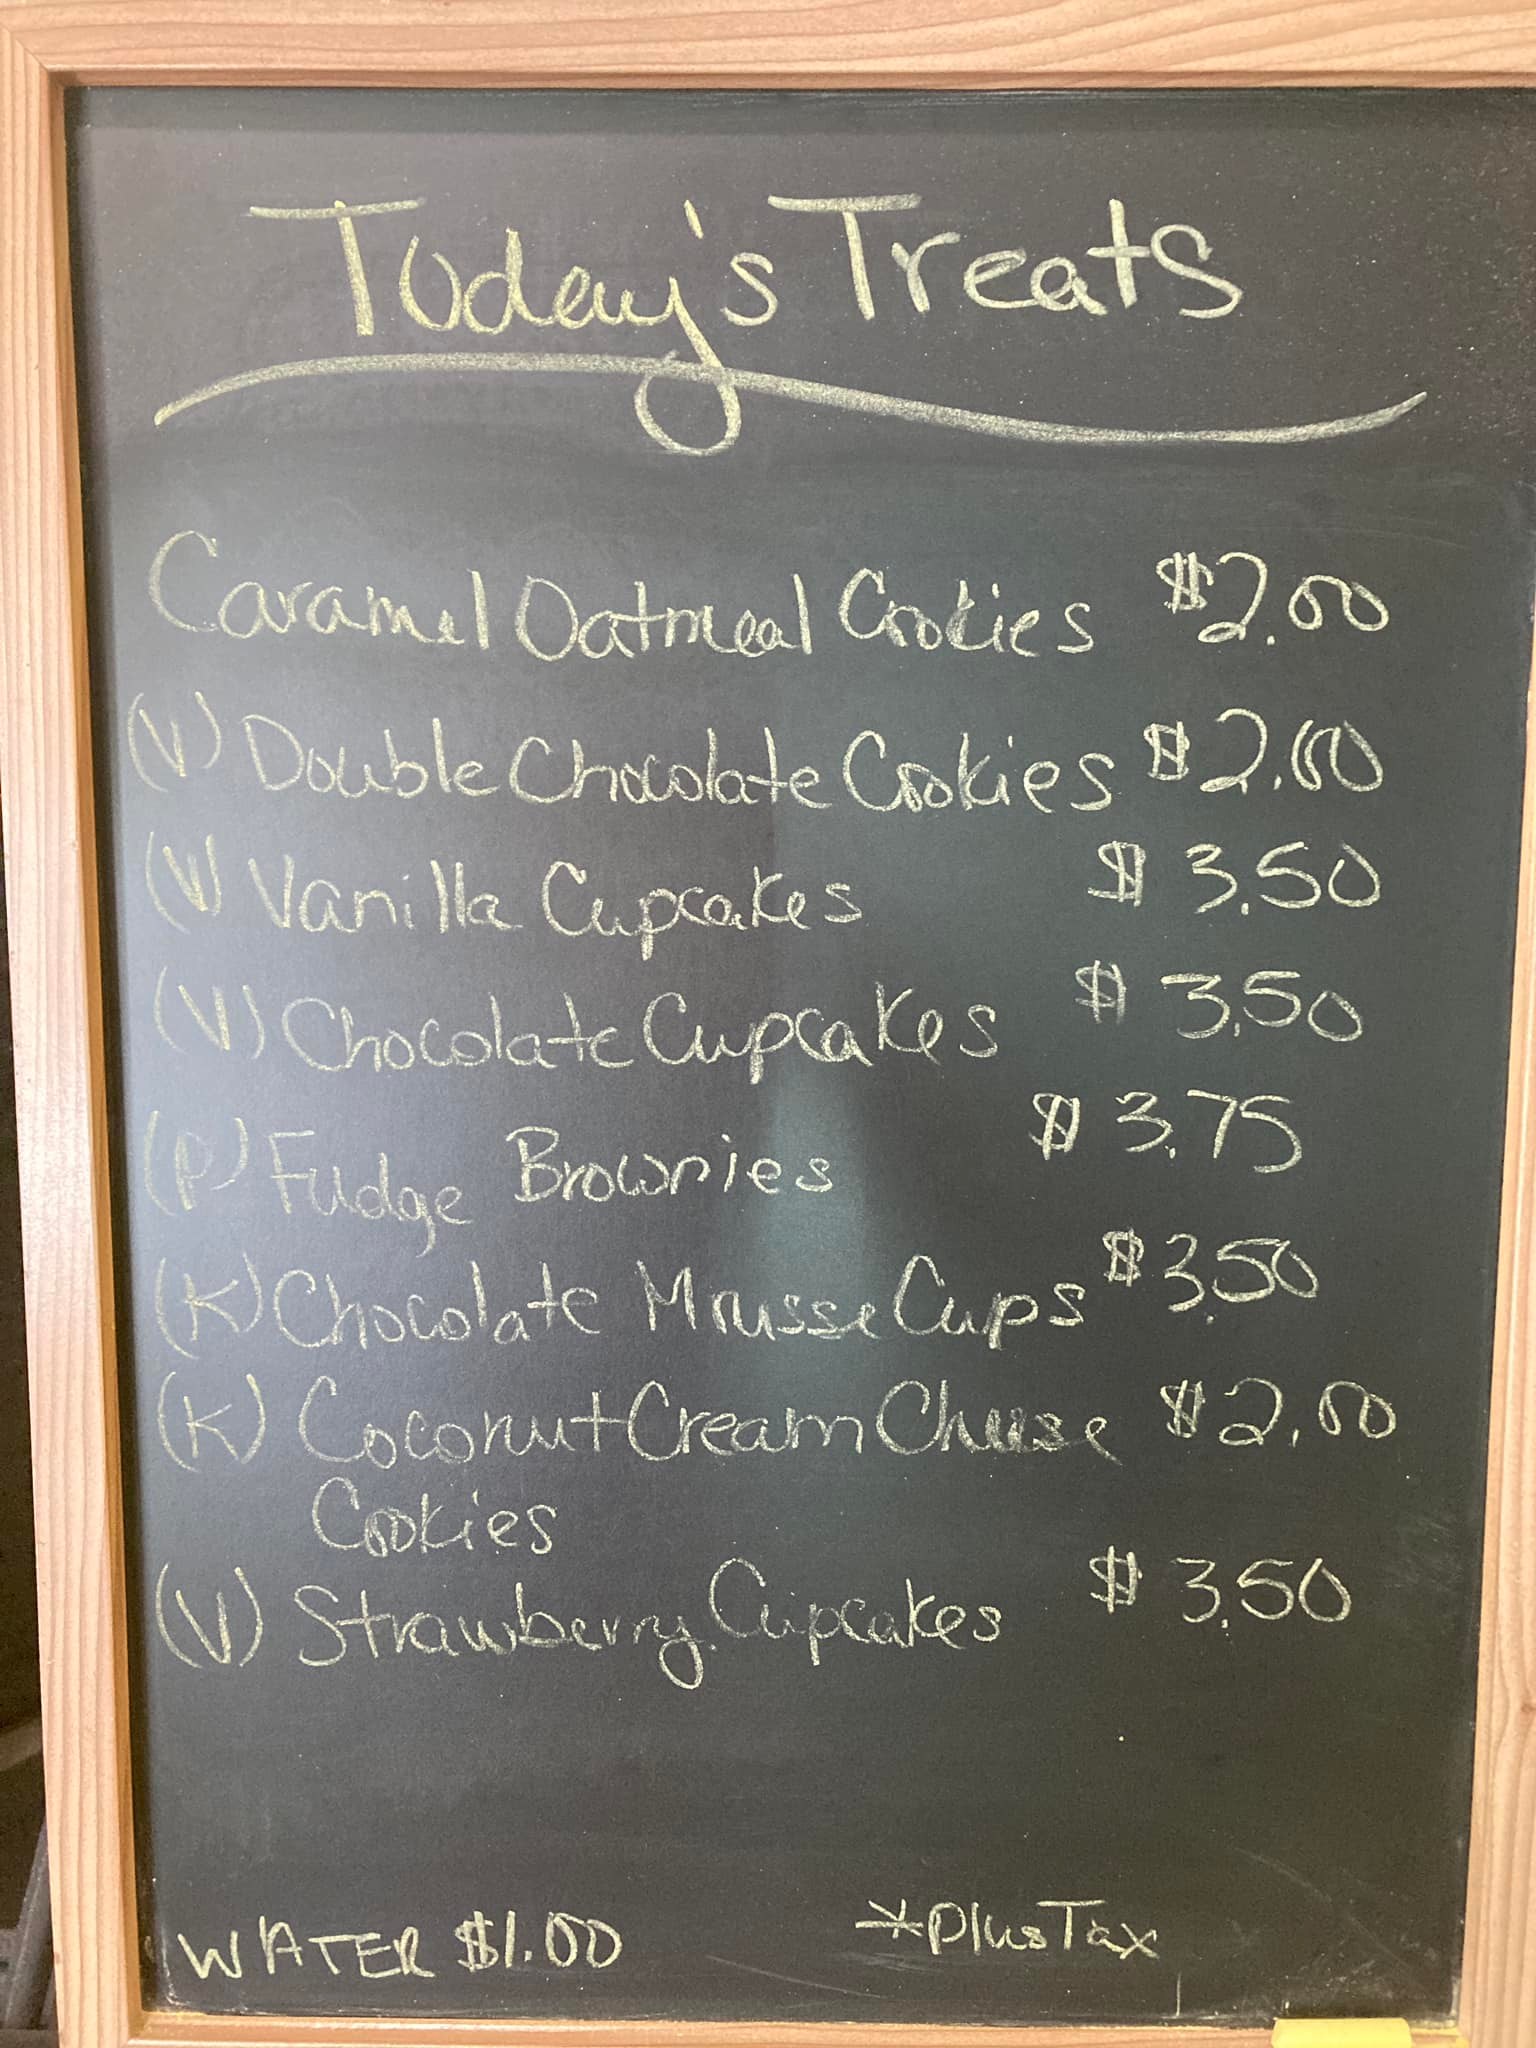 Today's Treats
Caramel Oatmeal Cookies $2.00
(V) Double Chocolate Cookies $2.00
(V) Vanilla Cupcakes $3.50
(V) Chocolate Cupcakes $3.50
(P) Fudge Brownies $3.75
(K) Chocolate Mousse Cups $3.50
(K) Coconut Cream Cheese $2.00
Cookies
(V) Strawberry Cupcakes $3.50
WATER $1.00 *plus Tax